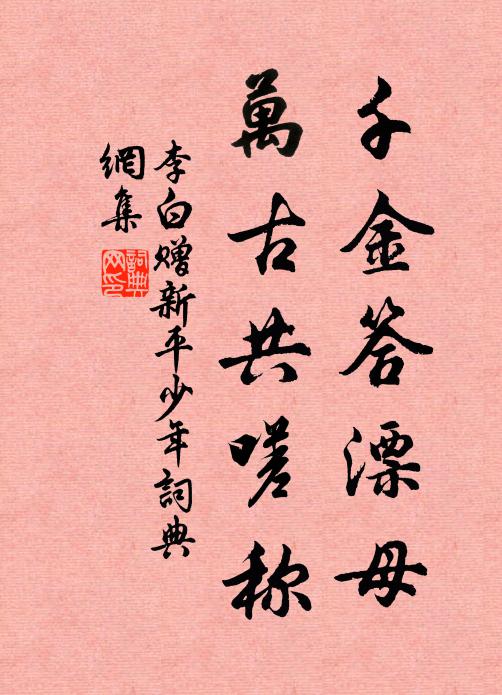 千金答漂母
萬古共嗟称
李白赠新平少年詞典
網集
詞典
网印